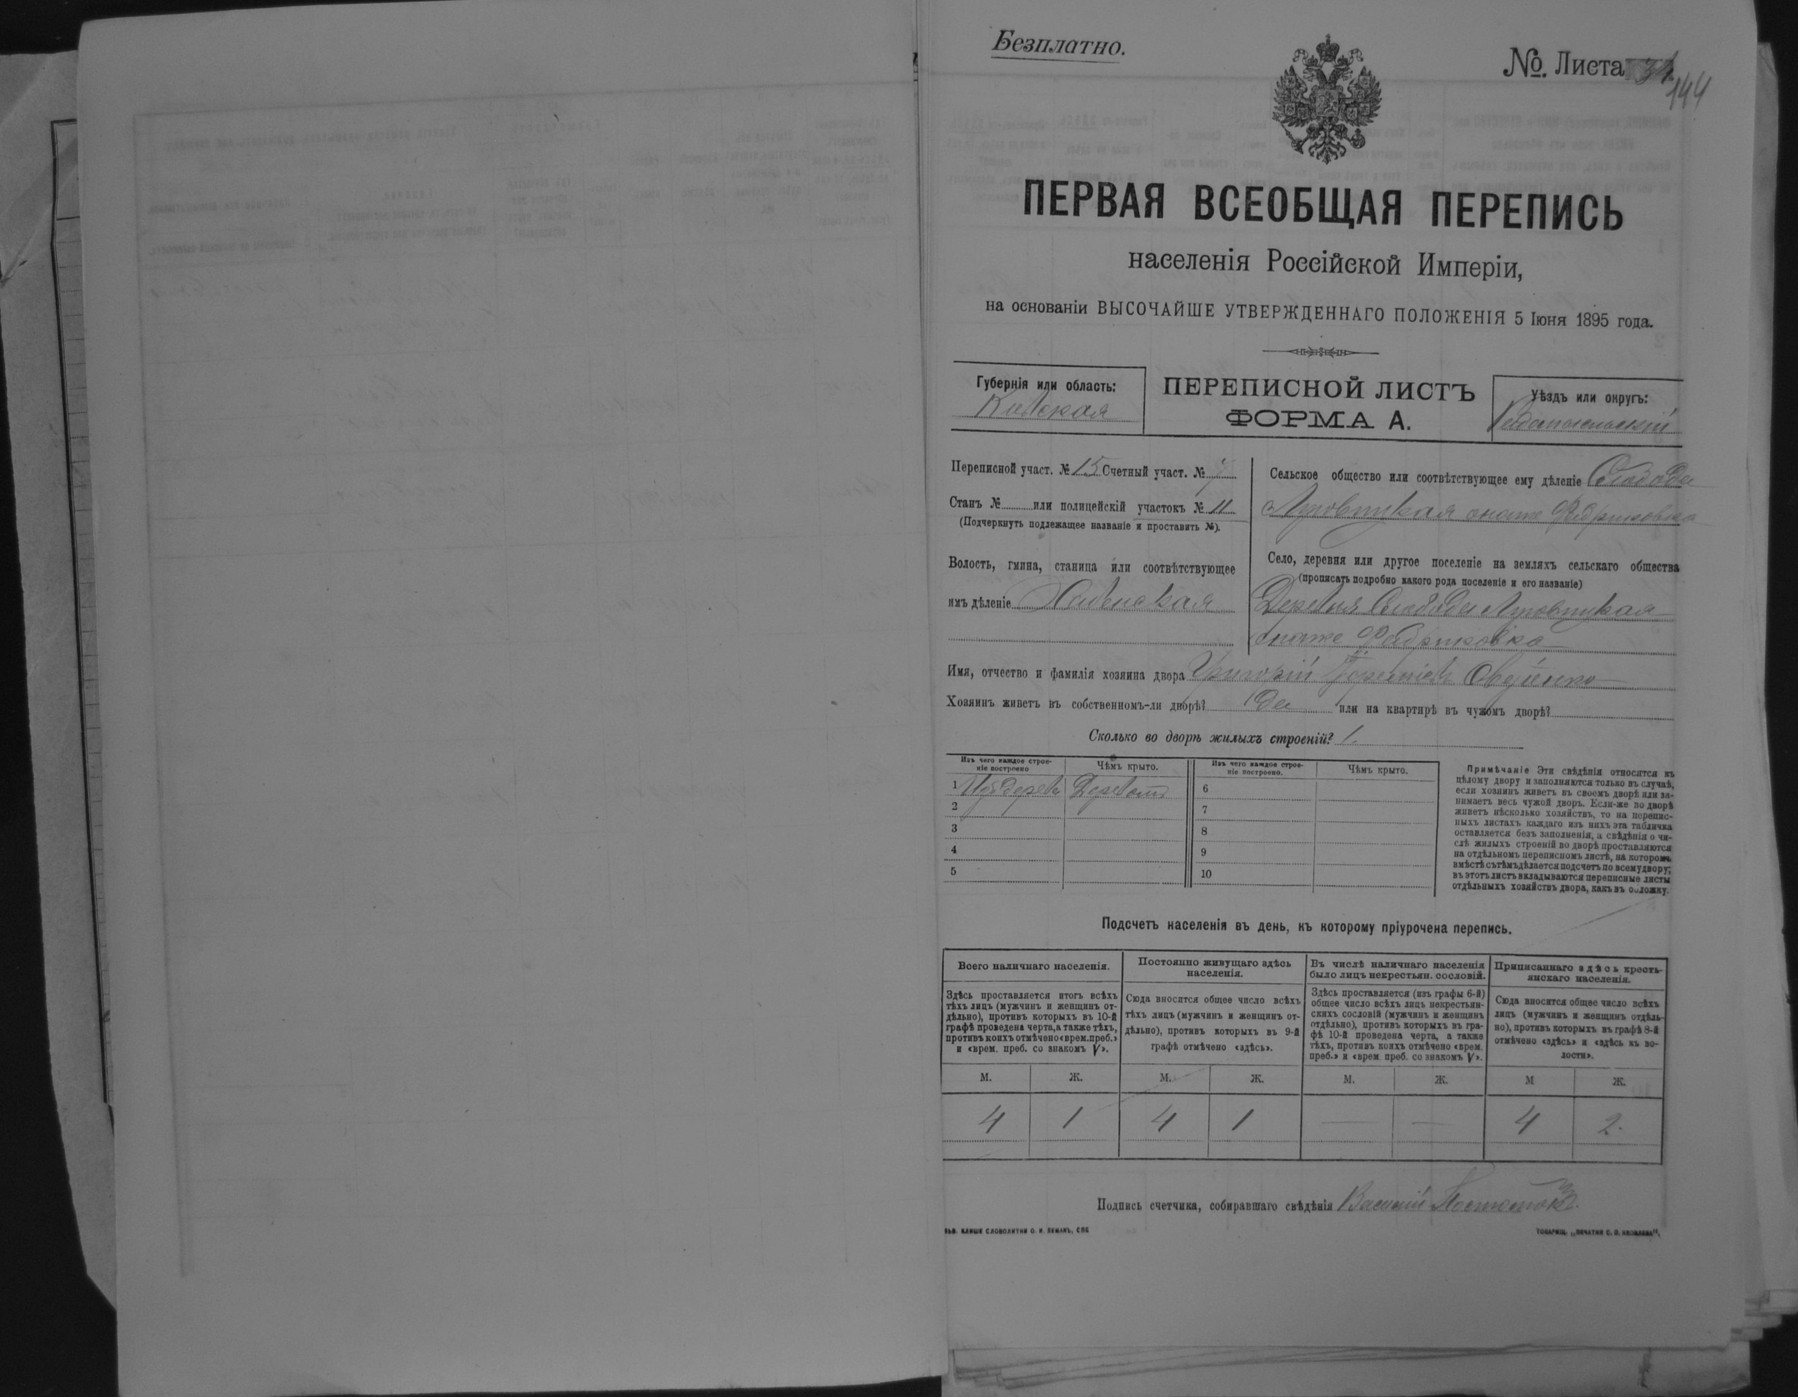 Безплатно.
№. Листа 31
144
ПЕРВАЯ ВСЕОБЩАЯ ПЕРЕПИСЬ
населенія Россійской Имперіи,
на основаніи ВЫСОЧАЙШЕ УТВЕРЖДЕННАГО ПОЛОЖЕНІЯ 5 Іюня 1895 года.
Губернія или область:
Кіевская
ПЕРЕПИСНОЙ ЛИСТЪ
ФОРМА А.
Уѣздъ или округъ:
Радомысльскій
Переписной участ. № 15 Счетный участ. № 7
Станъ № или полицейскій участокъ № 11
(Подчеркнуть подлежащее названіе и проставить №).
Волость, гмина, станица или соотвѣтствующее
имъ дѣленіе Хабенская
Сельское общество или соотвѣтствующее ему дѣленіе Слобода
Село, деревня или другое поселеніе на земляхъ сельскаго общества
(прописать подробно какого рода поселеніе и его названіе)
Деревня Слобода
Имя, отчество и фамилія хозяина двора Григорій
Хозяинъ живетъ въ собственномъ-ли дворѣ? Да или на квартирѣ въ чужомъ дворѣ?
Сколько во дворѣ жилыхъ строеній? 1.
Изъ чего каждое строе-
ніе построено
Чѣмъ крыто.
Изъ чего каждое строе-
ніе построено.
Чѣмъ крыто.
1 Изъ дерева Деревомъ
2
3
4
5
6
7
8
9
10
Примѣчаніе Эти свѣдѣнія относятся къ
цѣлому двору и заполняются только въ случаѣ,
если хозяинъ живетъ въ своемъ дворѣ или за-
нимаетъ весь чужой дворъ. Если-же во дворѣ
живетъ нѣсколько хозяйствъ, то на перепис-
ныхъ листахъ каждаго изъ нихъ эта табличка
оставляется безъ заполненія, а свѣдѣнія о чи-
слѣ жилыхъ строеній во дворѣ проставляются
на отдѣльномъ переписномъ листѣ, на которомъ
вмѣстѣ съ тѣмъ дѣлается подсчетъ по всему двору;
въ этотъ листъ вкладываются переписные листы
отдѣльныхъ хозяйствъ двора, какъ въ обложку.
Подсчетъ населенія въ день, къ которому пріурочена перепись.
Всего наличнаго населенія.
Здѣсь проставляется итогъ всѣхъ
тѣхъ лицъ (мужчинъ и женщинъ от-
дѣльно), противъ которыхъ въ 10-й
графѣ проведена черта, а также тѣхъ,
противъ коихъ отмѣчено «врем. преб.»
и «врем. преб. со знакомъ V».
Постоянно живущаго здѣсь
населенія.
Сюда вносится общее число всѣхъ
тѣхъ лицъ (мужчинъ и женщинъ от-
дѣльно), противъ которыхъ въ 9-й
графѣ отмѣчено «здѣсь».
Въ числѣ наличнаго населенія
было лицъ некрестьян. сословій.
Здѣсь проставляется (изъ графы 6-й)
общее число всѣхъ лицъ некрестьян-
скихъ сословій (мужчинъ и женщинъ
отдѣльно), противъ которыхъ въ гра-
фѣ 10-й проведена черта, а также
тѣхъ, противъ коихъ отмѣчено «врем.
преб.» и «врем. преб. со знакомъ V».
Приписаннаго здѣсь кресть-
янскаго населенія.
Сюда вносится общее число всѣхъ
лицъ (мужчинъ и женщинъ отдѣль-
но), противъ которыхъ въ графѣ 8-й
отмѣчено «здѣсь» и «здѣсь въ во-
лости».
М. Ж. М. Ж. М. Ж. М Ж.
4 1 4 1 — — 4 2.
Подпись счетчика, собиравшаго свѣдѣнія Василій
КЛИШЕ СЛОВОЛИТНИ О. И. ЛЕМАНЪ, СПБ
ТОВАРИЩ. „ПЕЧАТНЯ С. П. ЯКОВЛЕВА".